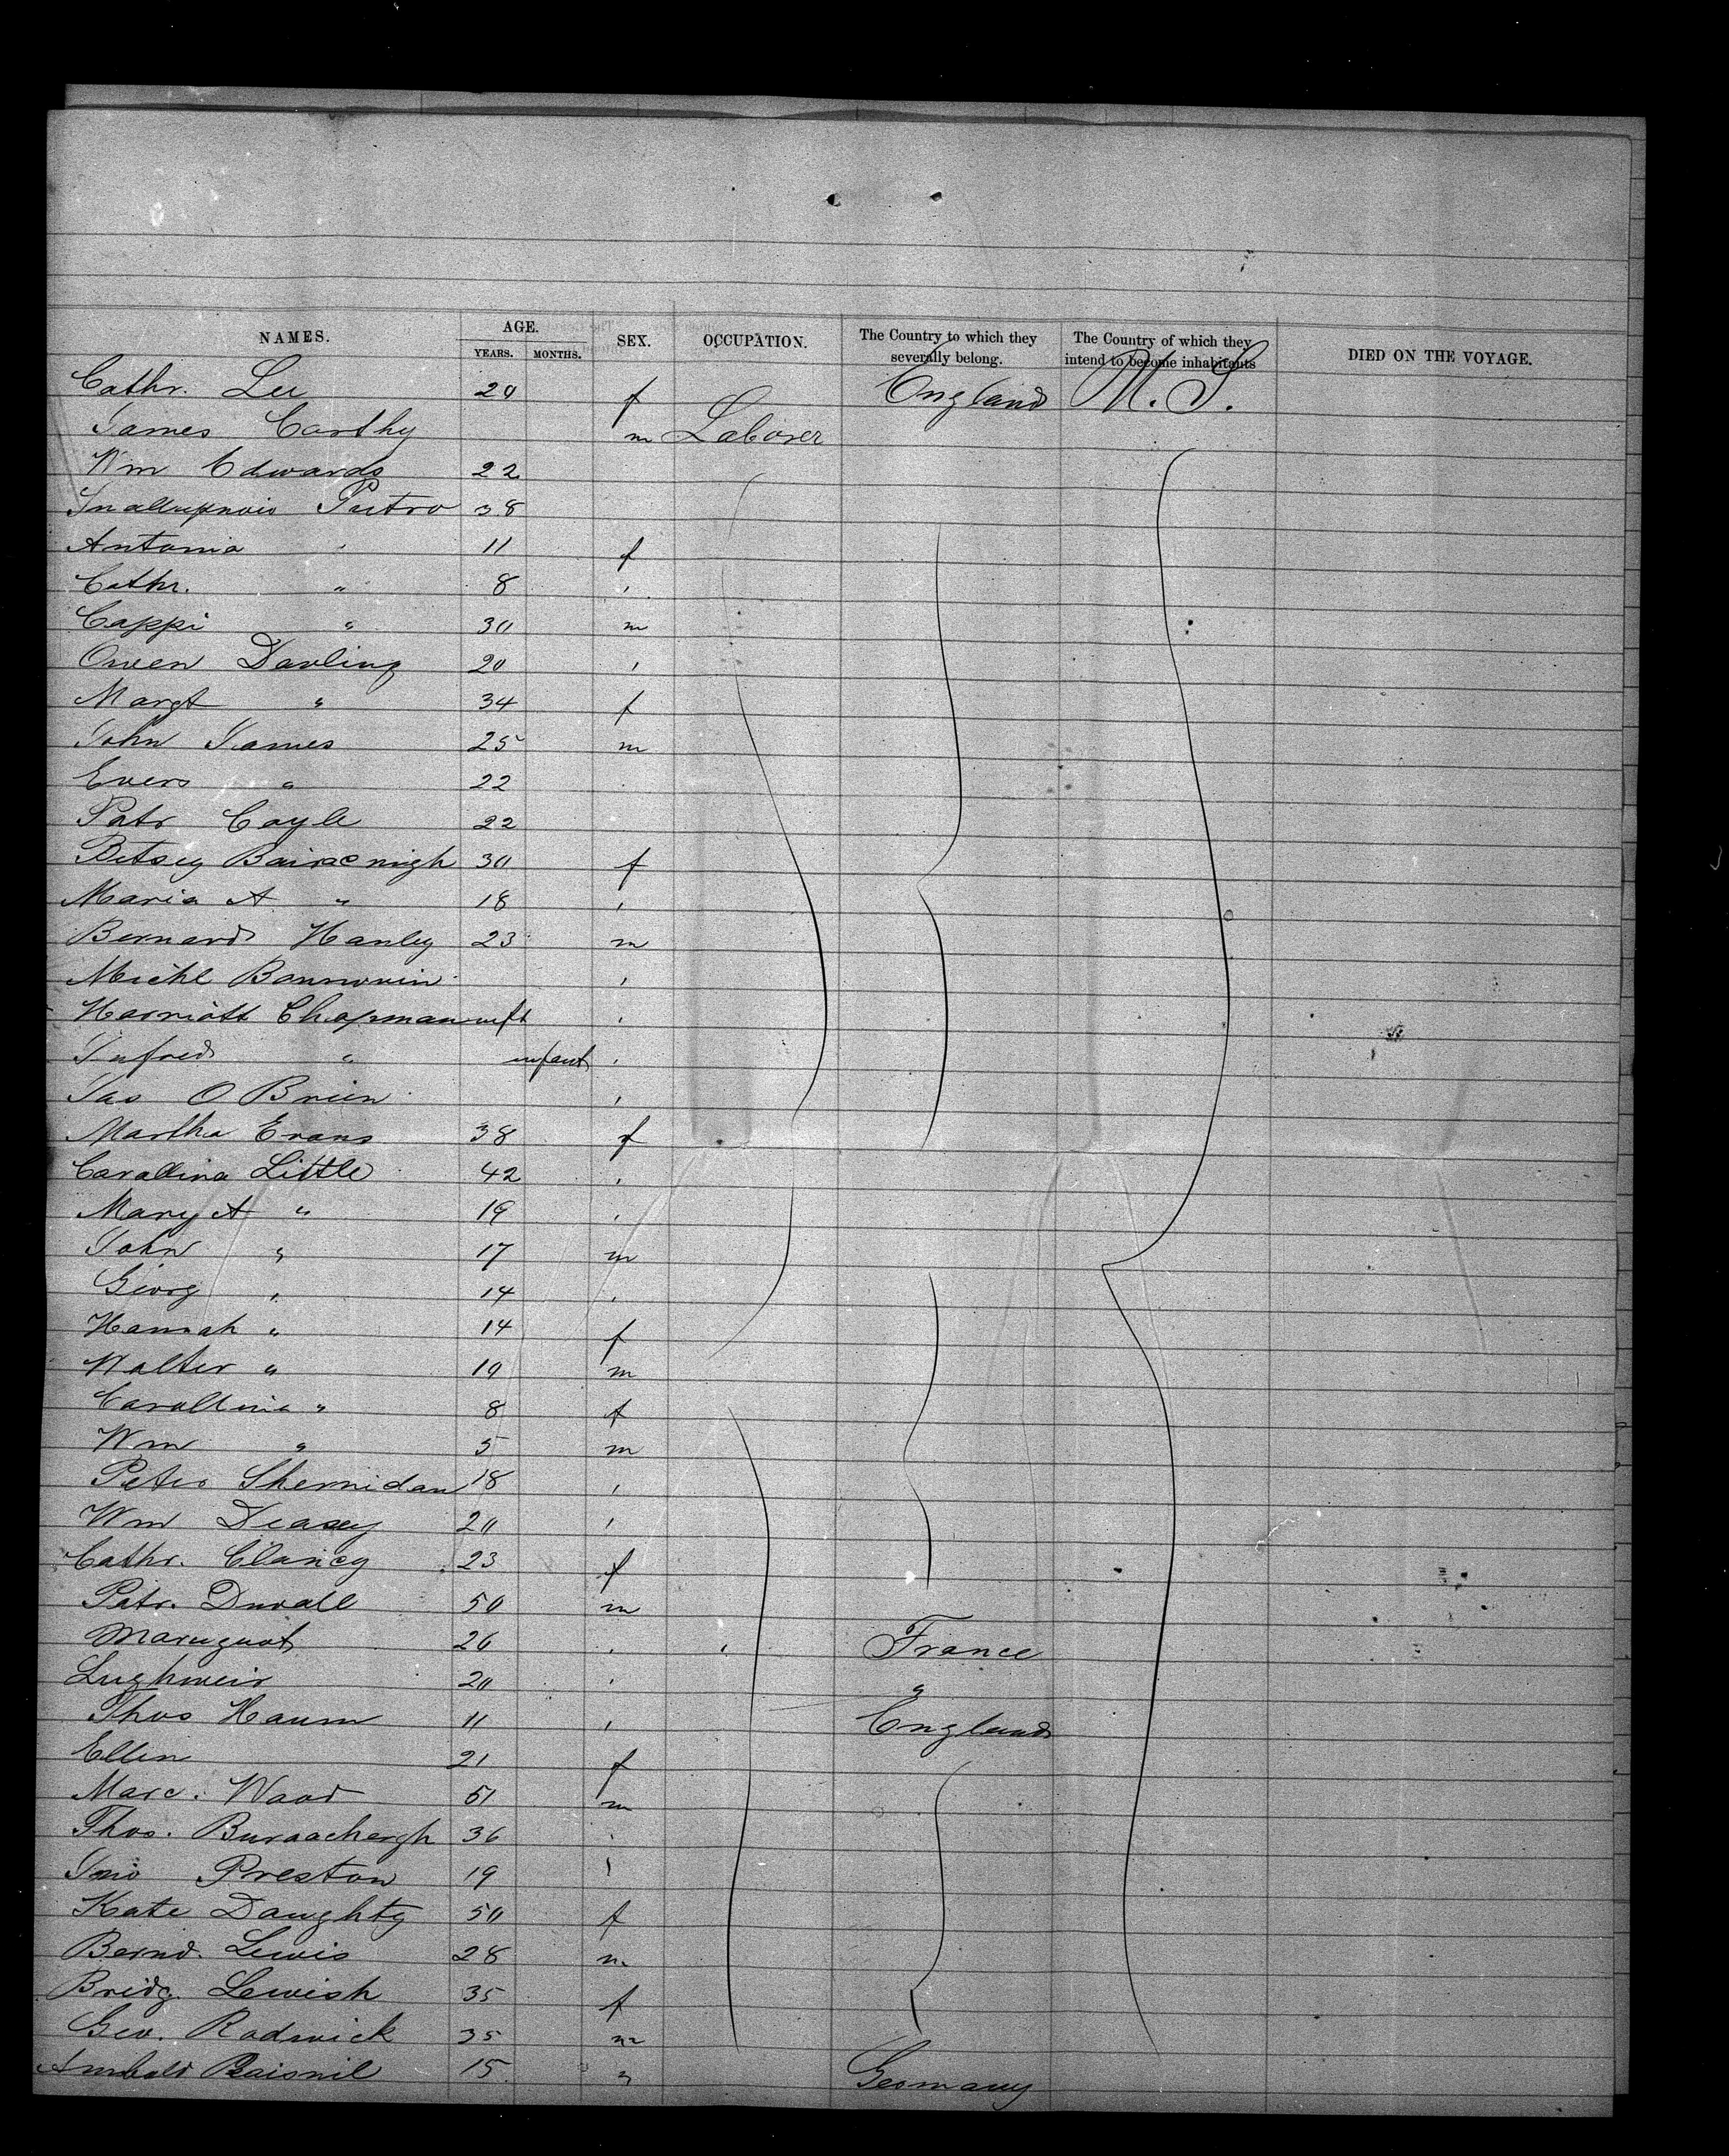 NAMES. AGE. SEX. OCCUPATION. The Country to which they severally belong. The Country of which they intend to become inhabitants DIED ON THE VOYAGE.
YEARS. MONTHS.
Cathr. Lee 20 f England U.S.
James Carthy m Laborer
Wm Edwards 22
Pietro 38
Antonia " 11 f
Cathr. " 8 "
Cappi " 30 m
Owen Darling 20 "
Margt " 34 f
John James 25 m
Evers " 22
Patr Coyle 22
Betsey 30 f
Maria A " 18 "
Bernard Hanley 23 m
Michl "
Harriott Chapman inft "
" infant "
Jas O Brien "
Martha Evans 38 f
Carallina Little 42 "
Mary A " 19 "
John " 17 m
Georg " 14 "
Hannah " 14 f
Walter " 10 m
Carallina " 8 f
Wm " 5 m
Peter Shernidan 18 "
Wm Deasey 20 "
Cathr. Clancy 23 f
Patr. Duvall 50 m
Maruguot 26 " " France
Lughweir 20 " "
Thos Haum 11 " England
Ellen 21 f
Marc. Wood 51 m
Thos. 36 "
Preston 19 "
Kate Daughty 50 f
Bernd. Lewis 28 m
Bridg. Lewish 35 f
Geo. Radwick 35 m
15 " Germany